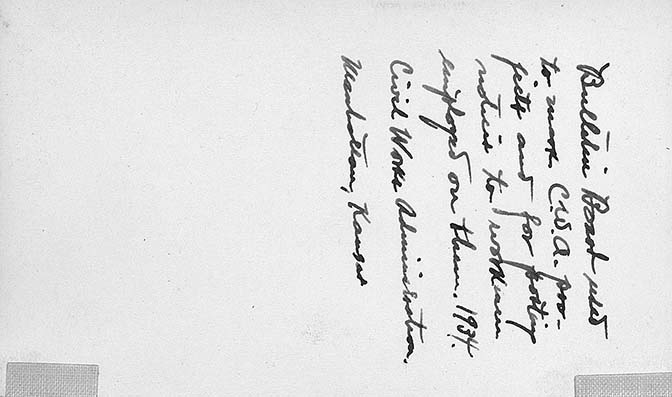 Bulletin Board used
to mark C.W.A. pro-
jects and for posting
notices to workmen
employed on them. 1934.
Civil Works Administration,
Manhattan, Kansas